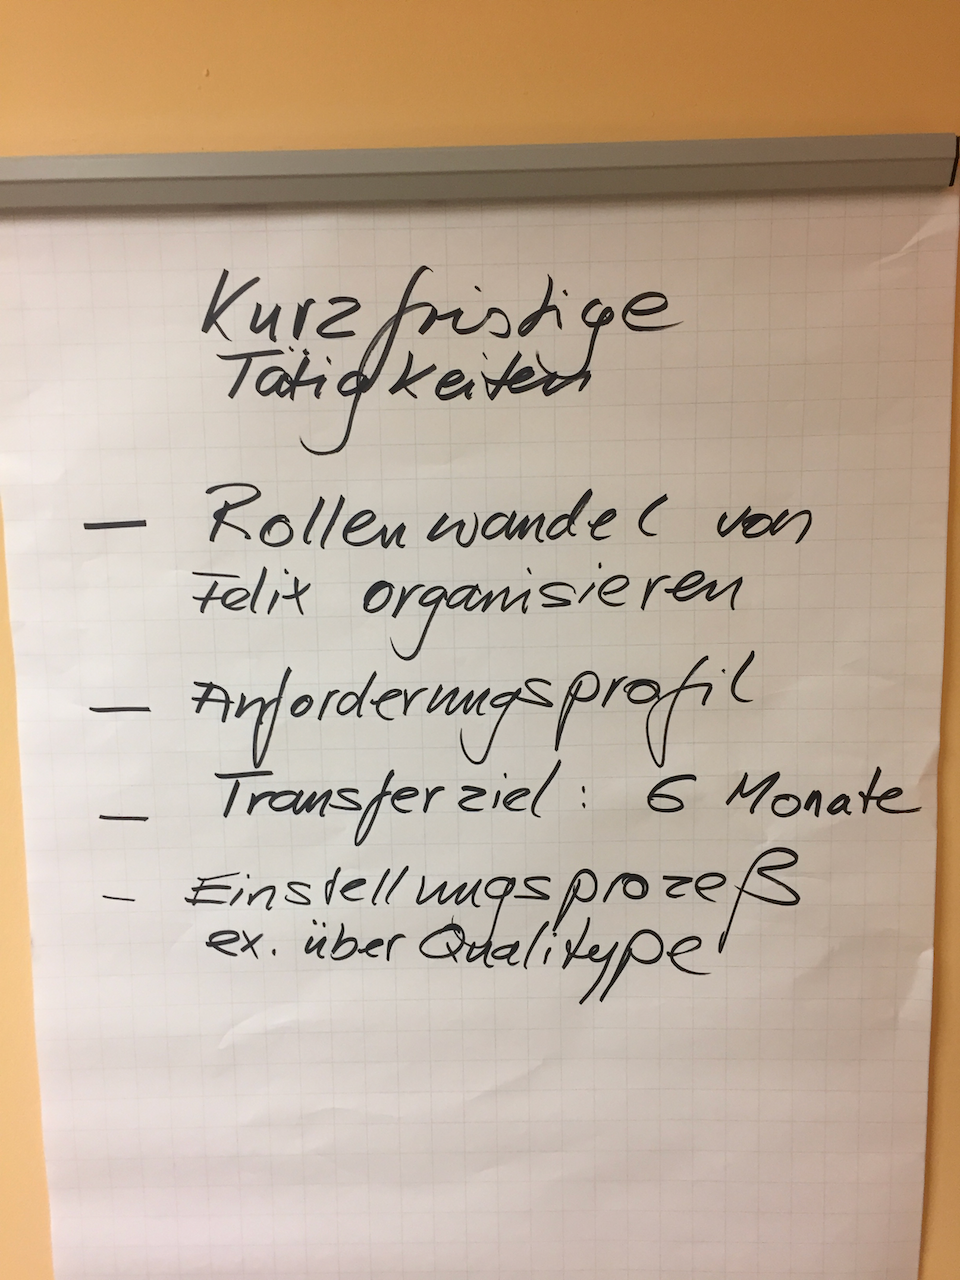 Kurzfristige
Tätigkeiten
— Rollenwandel von
Felix organisieren
— Anforderungsprofil
— Transferziel: 6 Monate
— Einstellungsprozeß
ex. über Qualitype